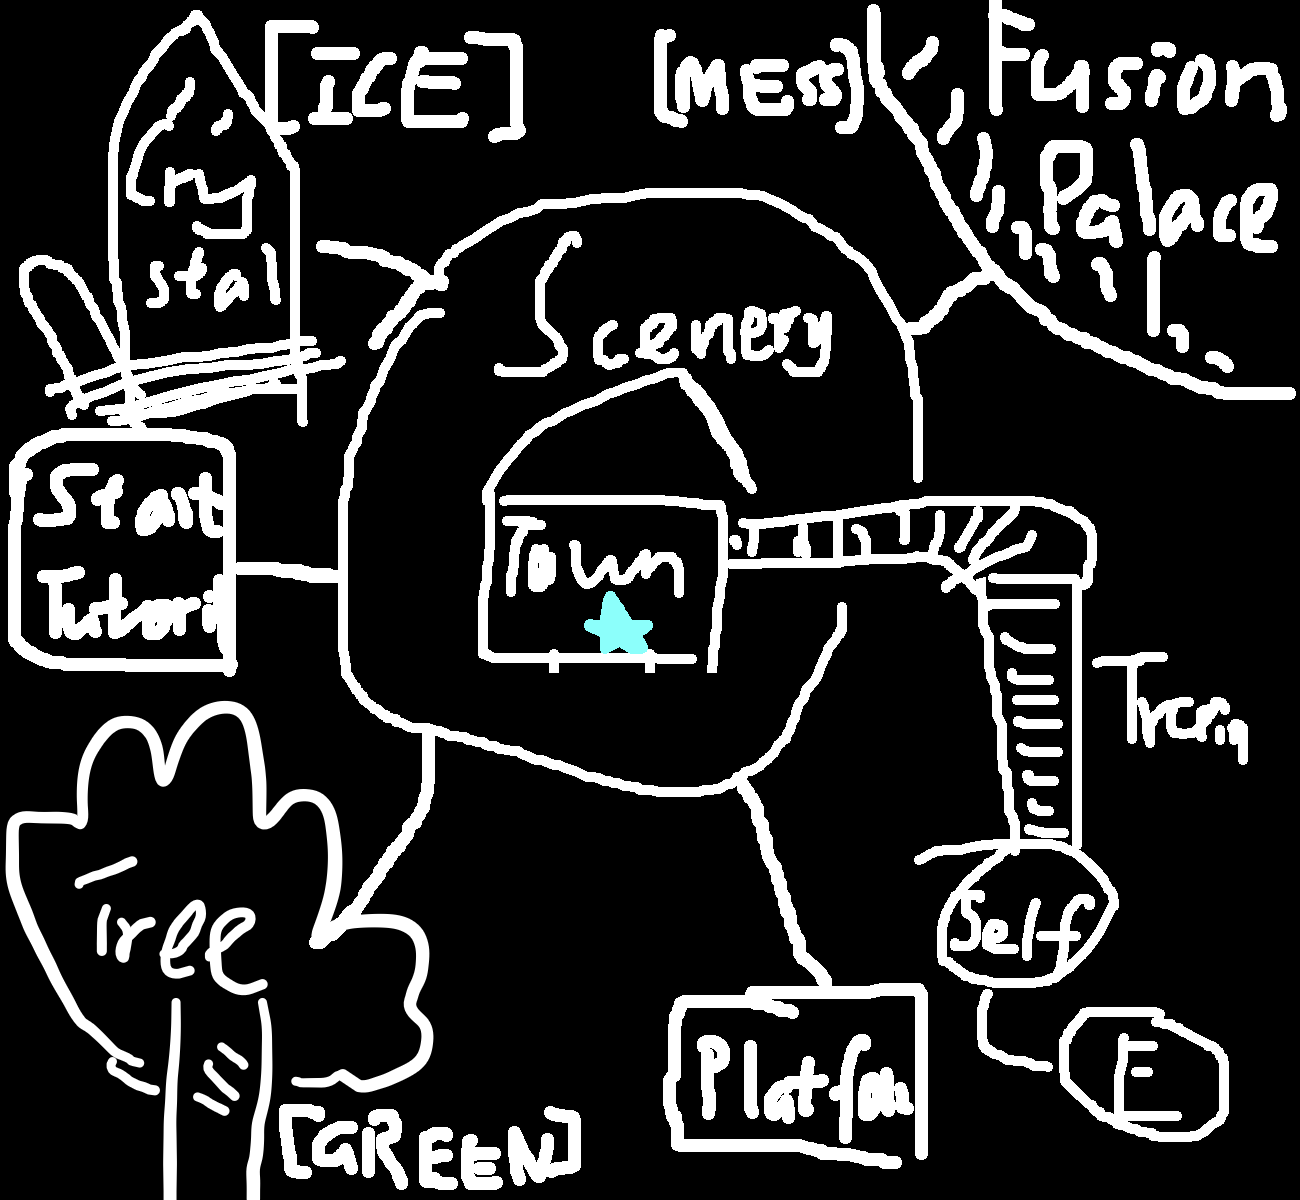 [ICE]
[MESS]
Fusion
Palace
Cry
stal
Scenery
Start
Tutori
Town
Train
Tree
Self
Platfor
E
[GREEN]